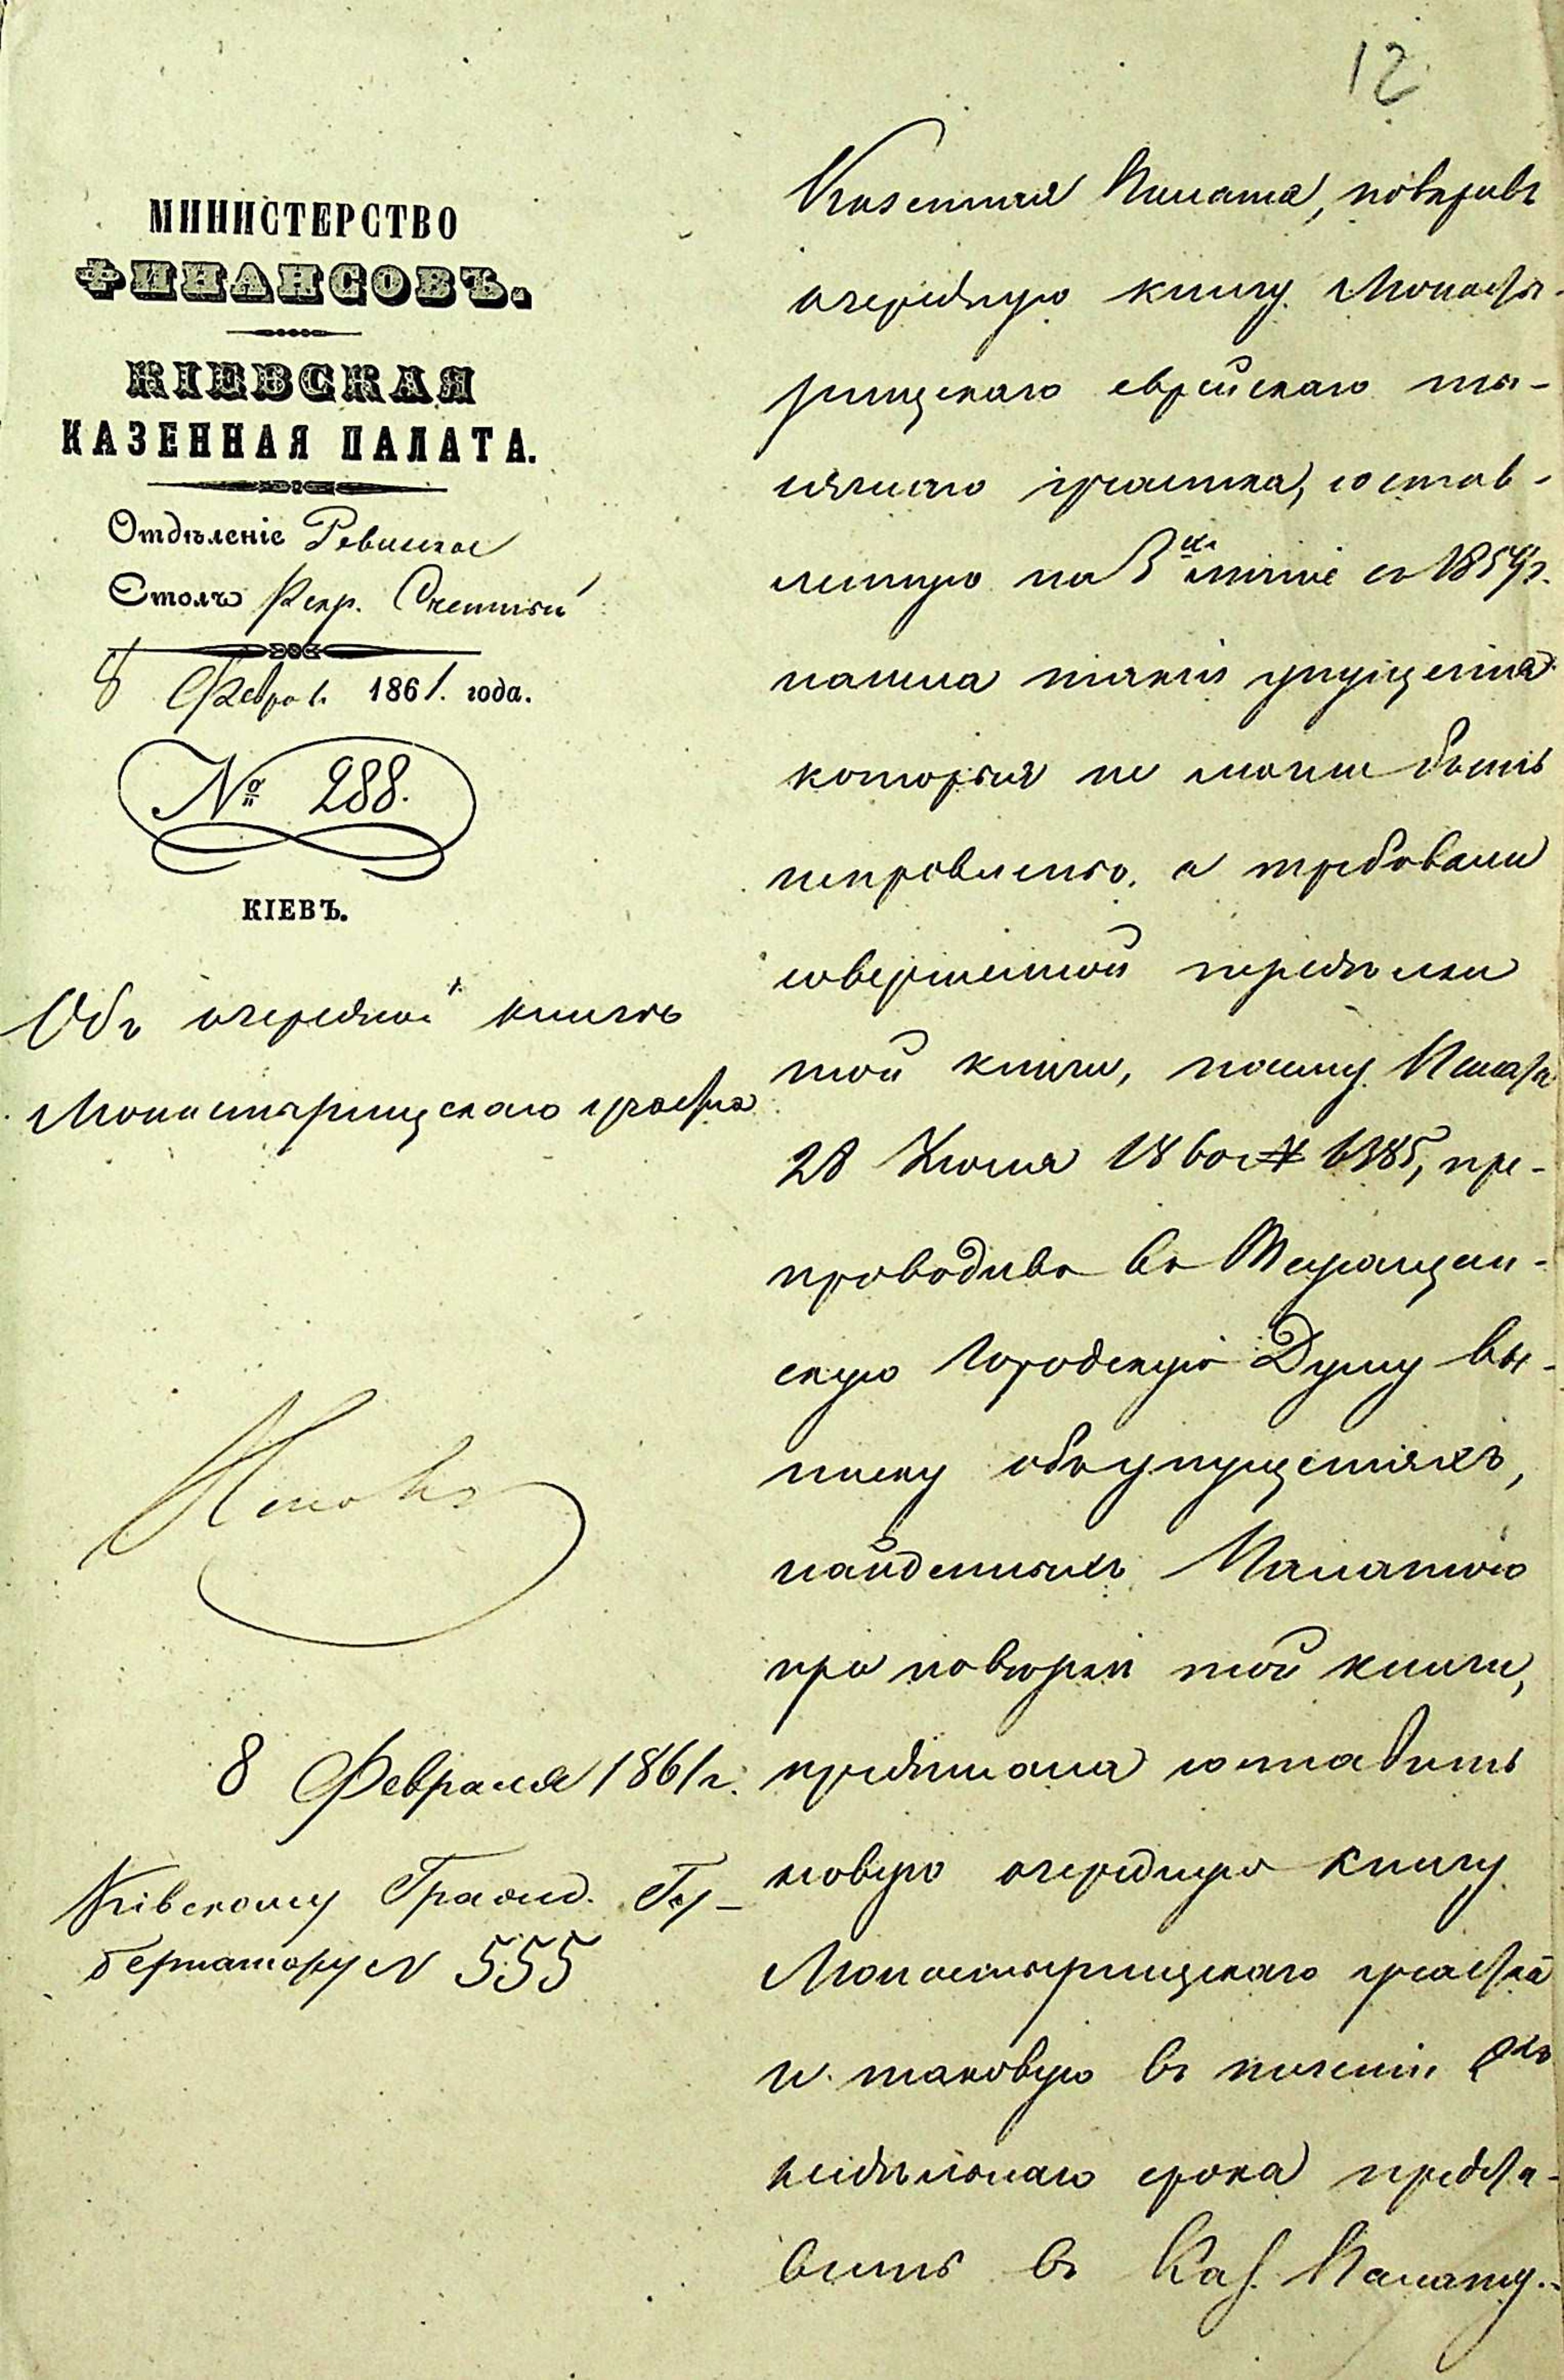 12
МИНИСТЕРСТВО
ФИНАНСОВЪ.
КІЕВСКАЯ
КАЗЕННАЯ ПАЛАТА.
Отдѣленіе Ревизское
Столъ Рекр. Счетный
8 Февра 1861. года.
№ 288.
КІЕВЪ.
Объ очередной книгѣ
Монастырищскаго участка
8 Февраля 1861 г.
Кіевскому Гражд. Гу-
бернатору N 555
Казенная Палата, повѣривъ
очередную книгу Монасты-
рищскаго еврейскаго ты-
сячнаго участка, состав-
ленную на 3хъ лѣтіе съ 1854 г.
нашла такія упущенія
которыя не могли быть
исправлены, а требовали
совершенной передѣлки
той книги, почему Палата
28 Іюня 1860 г № 6385, пре-
проводивъ въ Таращан-
скую Городскую Думу вы-
писку объ упущеніяхъ,
найденныхъ Палатою
при повѣркѣ той книги,
предписала составить
новую очередную книгу
Монастырищскаго участка
и таковую въ теченіи
недѣльнаго срока предста-
вить въ Каз. Палату.